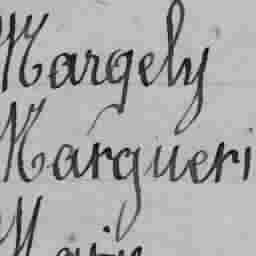 Margely
Margueri